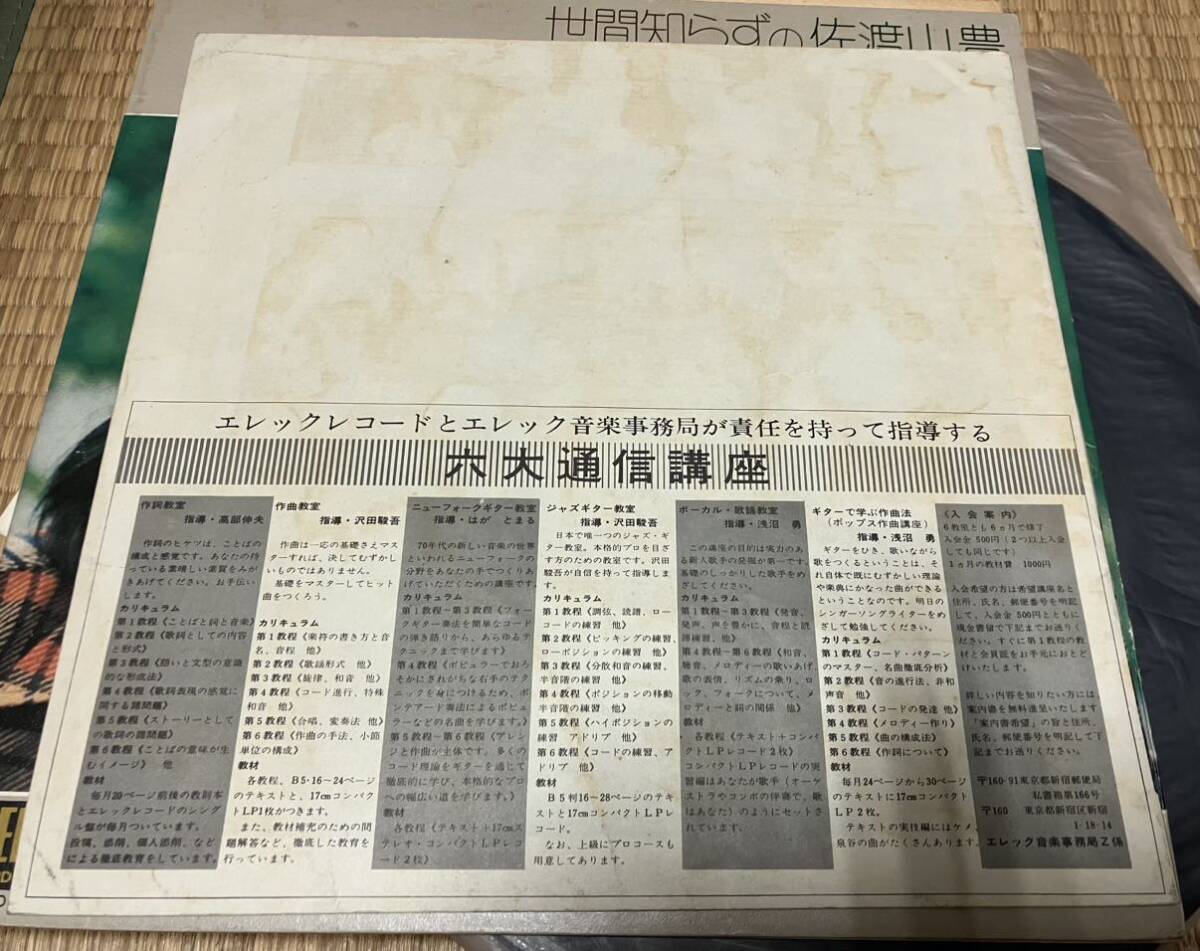 世間知らずの佐渡山豊
エレックレコードとエレック音楽事務局が責任を持って指導する
六大通信講座
作詞教室
指導・高部伸夫
作詞のヒケツは、ことばの
構成と感覚です。あなたの持
っている素晴しい素質をみが
きあげてください。お手伝い
します。
カリキュラム
第1教程《ことばと詞と音楽》
第2教程《歌詞としての内容
と形式》
第3教程《韻いと文型の意識
的な形成法》
第4教程《歌詞表現の感覚に
関する諸問題》
第5教程《ストーリーとして
の歌詞の諸問題》
第6教程《ことばの意味が生
むイメージ》 他
教材
毎月20ページ前後の教則本
とエレックレコードのシング
ル盤が毎月ついています。
投稿、添削、個人添削、など
による徹底教育をしています。
作曲教室
指導・沢田駿吾
作曲は一応の基礎さえマス
ターすれば、決してむずかし
いものではありません。
基礎をマスターしてヒット
曲をつくろう。
カリキュラム
第1教程《楽符の書き方と音
名、音程 他》
第2教程《歌謡形式 他》
第3教程《旋律、和音 他》
第4教程《コード進行、特殊
和音 他》
第5教程《合唱、変奏法 他》
第6教程《作曲の手法、小節
単位の構成》
教材
各教程、B5・16〜24ページ
のテキストと、17cmコンパク
トLP1枚がつきます。
また、教材補充のための問
題解答など、徹底した教育を
行っています。
ニューフォークギター教室
指導・はが とまる
70年代の新しい音楽の世界
といわれるニューフォークの
分野をあなたの手でつくりあ
げていただくための講座です。
カリキュラム
第1教程〜第3教程《フォー
クギター奏法を簡単なコード
の弾き語りから、あらゆるテ
クニックまで学びます》
第4教程《ポピュラーでおろ
そかにされがちな右手のテク
ニックを身につけるため、ボ
ンテアード奏法によるポピュ
ラーなどの名曲を学びます。》
第5教程〜第6教程《アレン
ジと作曲が主体です。多くの
コード理論をギターを通じて
徹底的に学び、本格的なプロ
への幅広い道を学びます。》
教材
各教程《テキスト+17cmス
テレオ・コンパクトLPレコ
ード2枚》
ジャズギター教室
指導・沢田駿吾
日本で唯一つのジャズ・ギ
ター教室。本格的プロを目ざ
す方のための教室です。沢田
駿吾が自信を持って指導しま
す。
カリキュラム
第1教程《調弦、読譜、ロー
コードの練習 他》
第2教程《ピッキングの練習、
ローポジションの練習 他》
第3教程《分散和音の練習、
半音階の練習 他》
第4教程《ポジションの移動
半音階の練習 他》
第5教程《ハイポジションの
練習 アドリブ 他》
第6教程《コードの練習、ア
ドリブ 他》
教材
B5判16〜28ページのテキ
ストと17cmコンパクトLPレ
コード。
なお、上級にプロコースも
用意してあります。
ボーカル・歌謡教室
指導・浅沼 勇
この講座の目的は実力のあ
る新人歌手の発掘が第一です。
基礎のしっかりした歌手をめ
ざしてください。
カリキュラム
第1教程〜第3教程《発音、
発声、声を豊かに、音程と読
譜練習、他》
第4教程〜第6教程《和音、
聴音、メロディーの歌いあげ、
歌の表情、リズムの乗り、ロ
ック、フォークについて、メ
ロディーと詞の関係 他》
教材
各教程《テキスト+コンパ
クトLPレコード2枚》
コンパクトLPレコードの実
習編はあなたが歌手(オーケ
ストラやコンボの伴奏で、歌
はあなた)のようにセットさ
れています。
ギターで学ぶ作曲法
(ポップス作曲講座)
指導・浅沼 勇
ギターをひき、歌いながら
歌をつくるということは、そ
れ自体で既にむずかしい理論
や楽典にかなった曲ができる
ということなのです。明日の
シンガーソングライターをめ
ざして勉強してください。
カリキュラム
第1教程《コード・パターン
のマスター、名曲徹底分析》
第2教程《音の進行法、非和
声音 他》
第3教程《コードの発達 他》
第4教程《メロディー作り》
第5教程《曲の構成法》
第6教程《作詞について》
教材
毎月24ページから30ページ
のテキストに17cmコンパクト
LP2枚。
テキストの実技編にはケメ、
泉谷の曲がたくさんあります。
《入会案内》
6教室とも6ヵ月で修了
入会金 500円(2つ以上入会
しても同じです)
1ヵ月の教材費 1000円
入会希望の方は希望講座名と
住所、氏名、郵便番号を明記
して、入会金 500円とともに
現金書留で下記までお送りく
ださい。すぐに第1教程の教
材と会員証をお手元におとど
けいたします。
詳しい内容を知りたい方には
案内書を無料進呈いたします
「案内書希望」の旨と住所、
氏名、郵便番号を明記して下
記までお送りください。
〒160-91東京都新宿郵便局
私書箱第166号
〒160 東京都新宿区新宿
1-18-14
エレック音楽事務局Z係